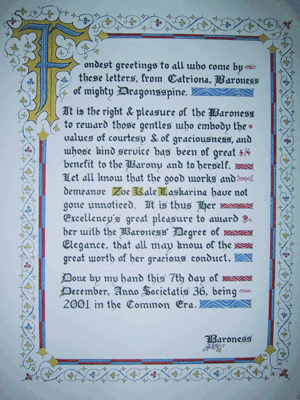 Fondest greetings to all who come by
these letters, from Catriona, Baroness
of mighty Dragonsspine.
It is the right & pleasure of the Baroness
to reward those gentles who embody the
values of courtesy & of graciousness, and
whose kind service has been of great
benefit to the Barony and to herself.
Let all know that the good works and
demeanor Zoe Kale Laskarina have not
gone unnoticed. It is thus Her
Excellency's great pleasure to award
her with the Baroness' Degree of
Elegance, that all may know of the
great worth of her gracious conduct.
Done by my hand this 7th day of
December, Anno Societatis 36, being
2001 in the Common Era.
Baroness